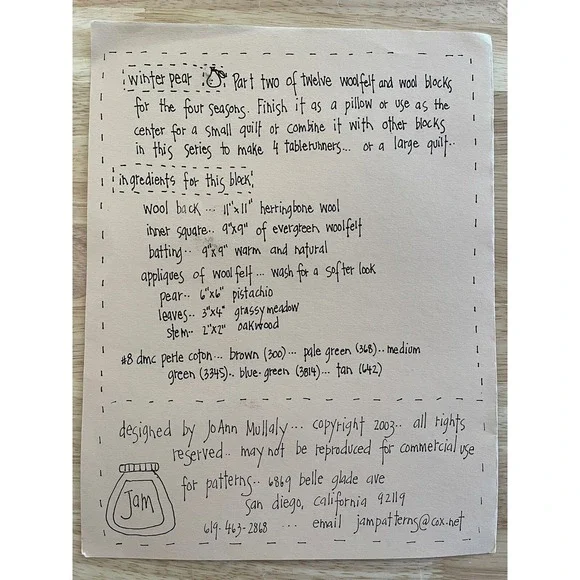 winter pear Part two of twelve woolfelt and wool blocks
for the four seasons. Finish it as a pillow or use as the
center for a small quilt or combine it with other blocks
in this series to make 4 tablerunners... or a large quilt..
ingredients for this block
wool back... 11"x11" herringbone wool
inner square.. 9"x9" of evergreen woolfelt
batting.. 9"x9" warm and natural
appliques of woolfelt... wash for a softer look
pear.. 6"x6" pistachio
leaves.. 3"x4" grassy meadow
stem.. 2"x2" oakwood
#8 dmc perle coton... brown (300)... pale green (368)..medium
green (3345).. blue-green (3814)... tan (642)
designed by JoAnn Mullaly... copyright 2003.. all rights
reserved.. may not be reproduced for commercial use
for patterns.. 6869 belle glade ave
san diego, california 92119
619-463-2868 ... email jampatterns@cox.net
Jam